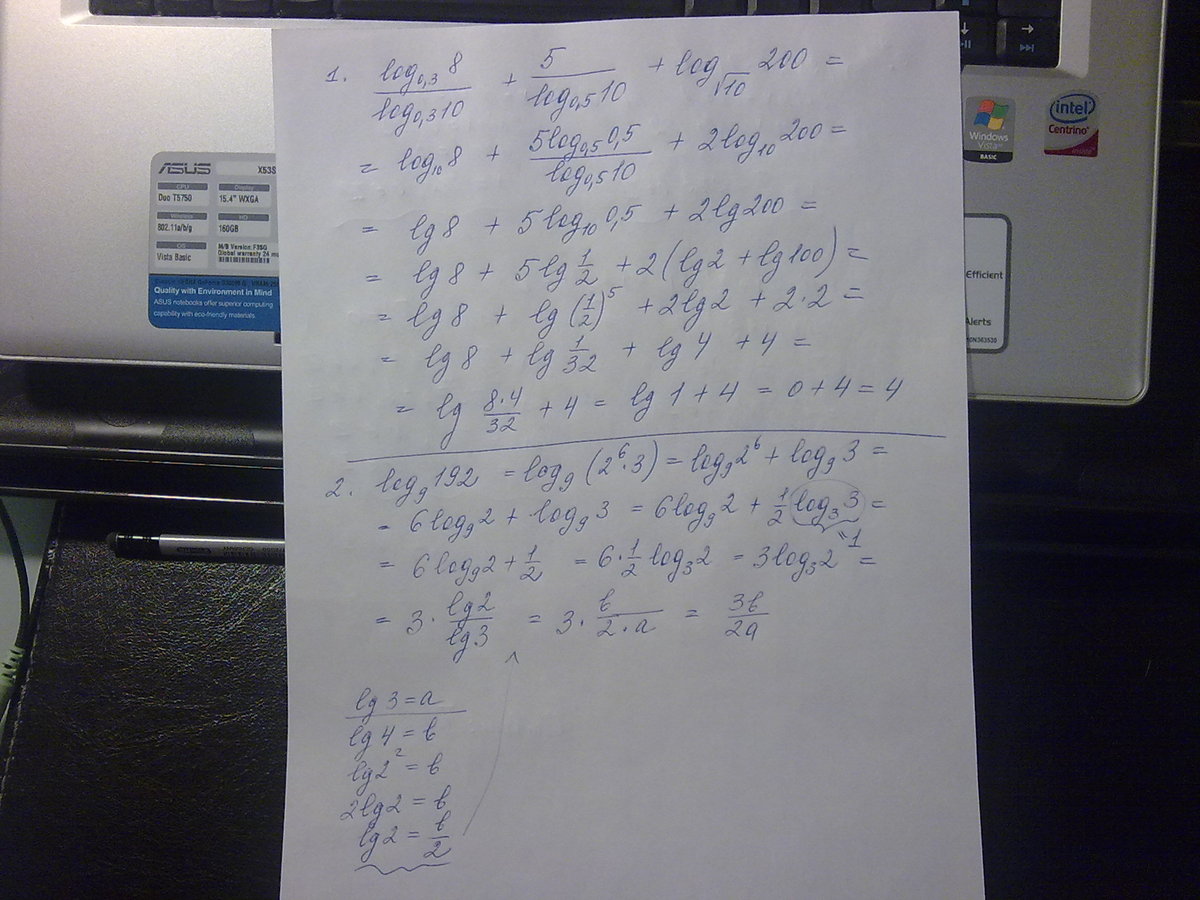 ASUS X53S
CPU
Duo T5750
Display
15.4" WXGA
Wireless
802.11a/b/g
HD
160GB
OS
Vista Basic
M/B Version: F3SG
Global warranty 24
Quality with Environment in Mind
ASUS notebooks offer superior computing
capability with eco-friendly materials.
Windows Vista™
BASIC
intel
Centrino
inside
Efficient
Alerts
1. log₀,₃ 8 / log₀,₃ 10 + 5 / log₀,₅ 10 + log_√10 200 =
= log₁₀ 8 + 5log₀,₅ 0,5 / log₀,₅ 10 + 2log₁₀ 200 =
= lg 8 + 5 log₁₀ 0,5 + 2 lg 200 =
= lg 8 + 5 lg 1/2 + 2(lg 2 + lg 100) =
= lg 8 + lg (1/2)⁵ + 2 lg 2 + 2·2 =
= lg 8 + lg 1/32 + lg 4 + 4 =
= lg 8·4/32 + 4 = lg 1 + 4 = 0 + 4 = 4
2. log₉ 192 = log₉ (2⁶·3) = log₉ 2⁶ + log₉ 3 =
= 6 log₉ 2 + log₉ 3 = 6 log₉ 2 + 1/2 log₃ 3 =
"1
= 6 log₉ 2 + 1/2 = 6·1/2 log₃ 2 = 3 log₃ 2 =
= 3· lg 2 / lg 3 = 3· в / 2·a = 3в / 2a
lg 3 = a
lg 4 = в
lg 2² = в
2 lg 2 = в
lg 2 = в/2